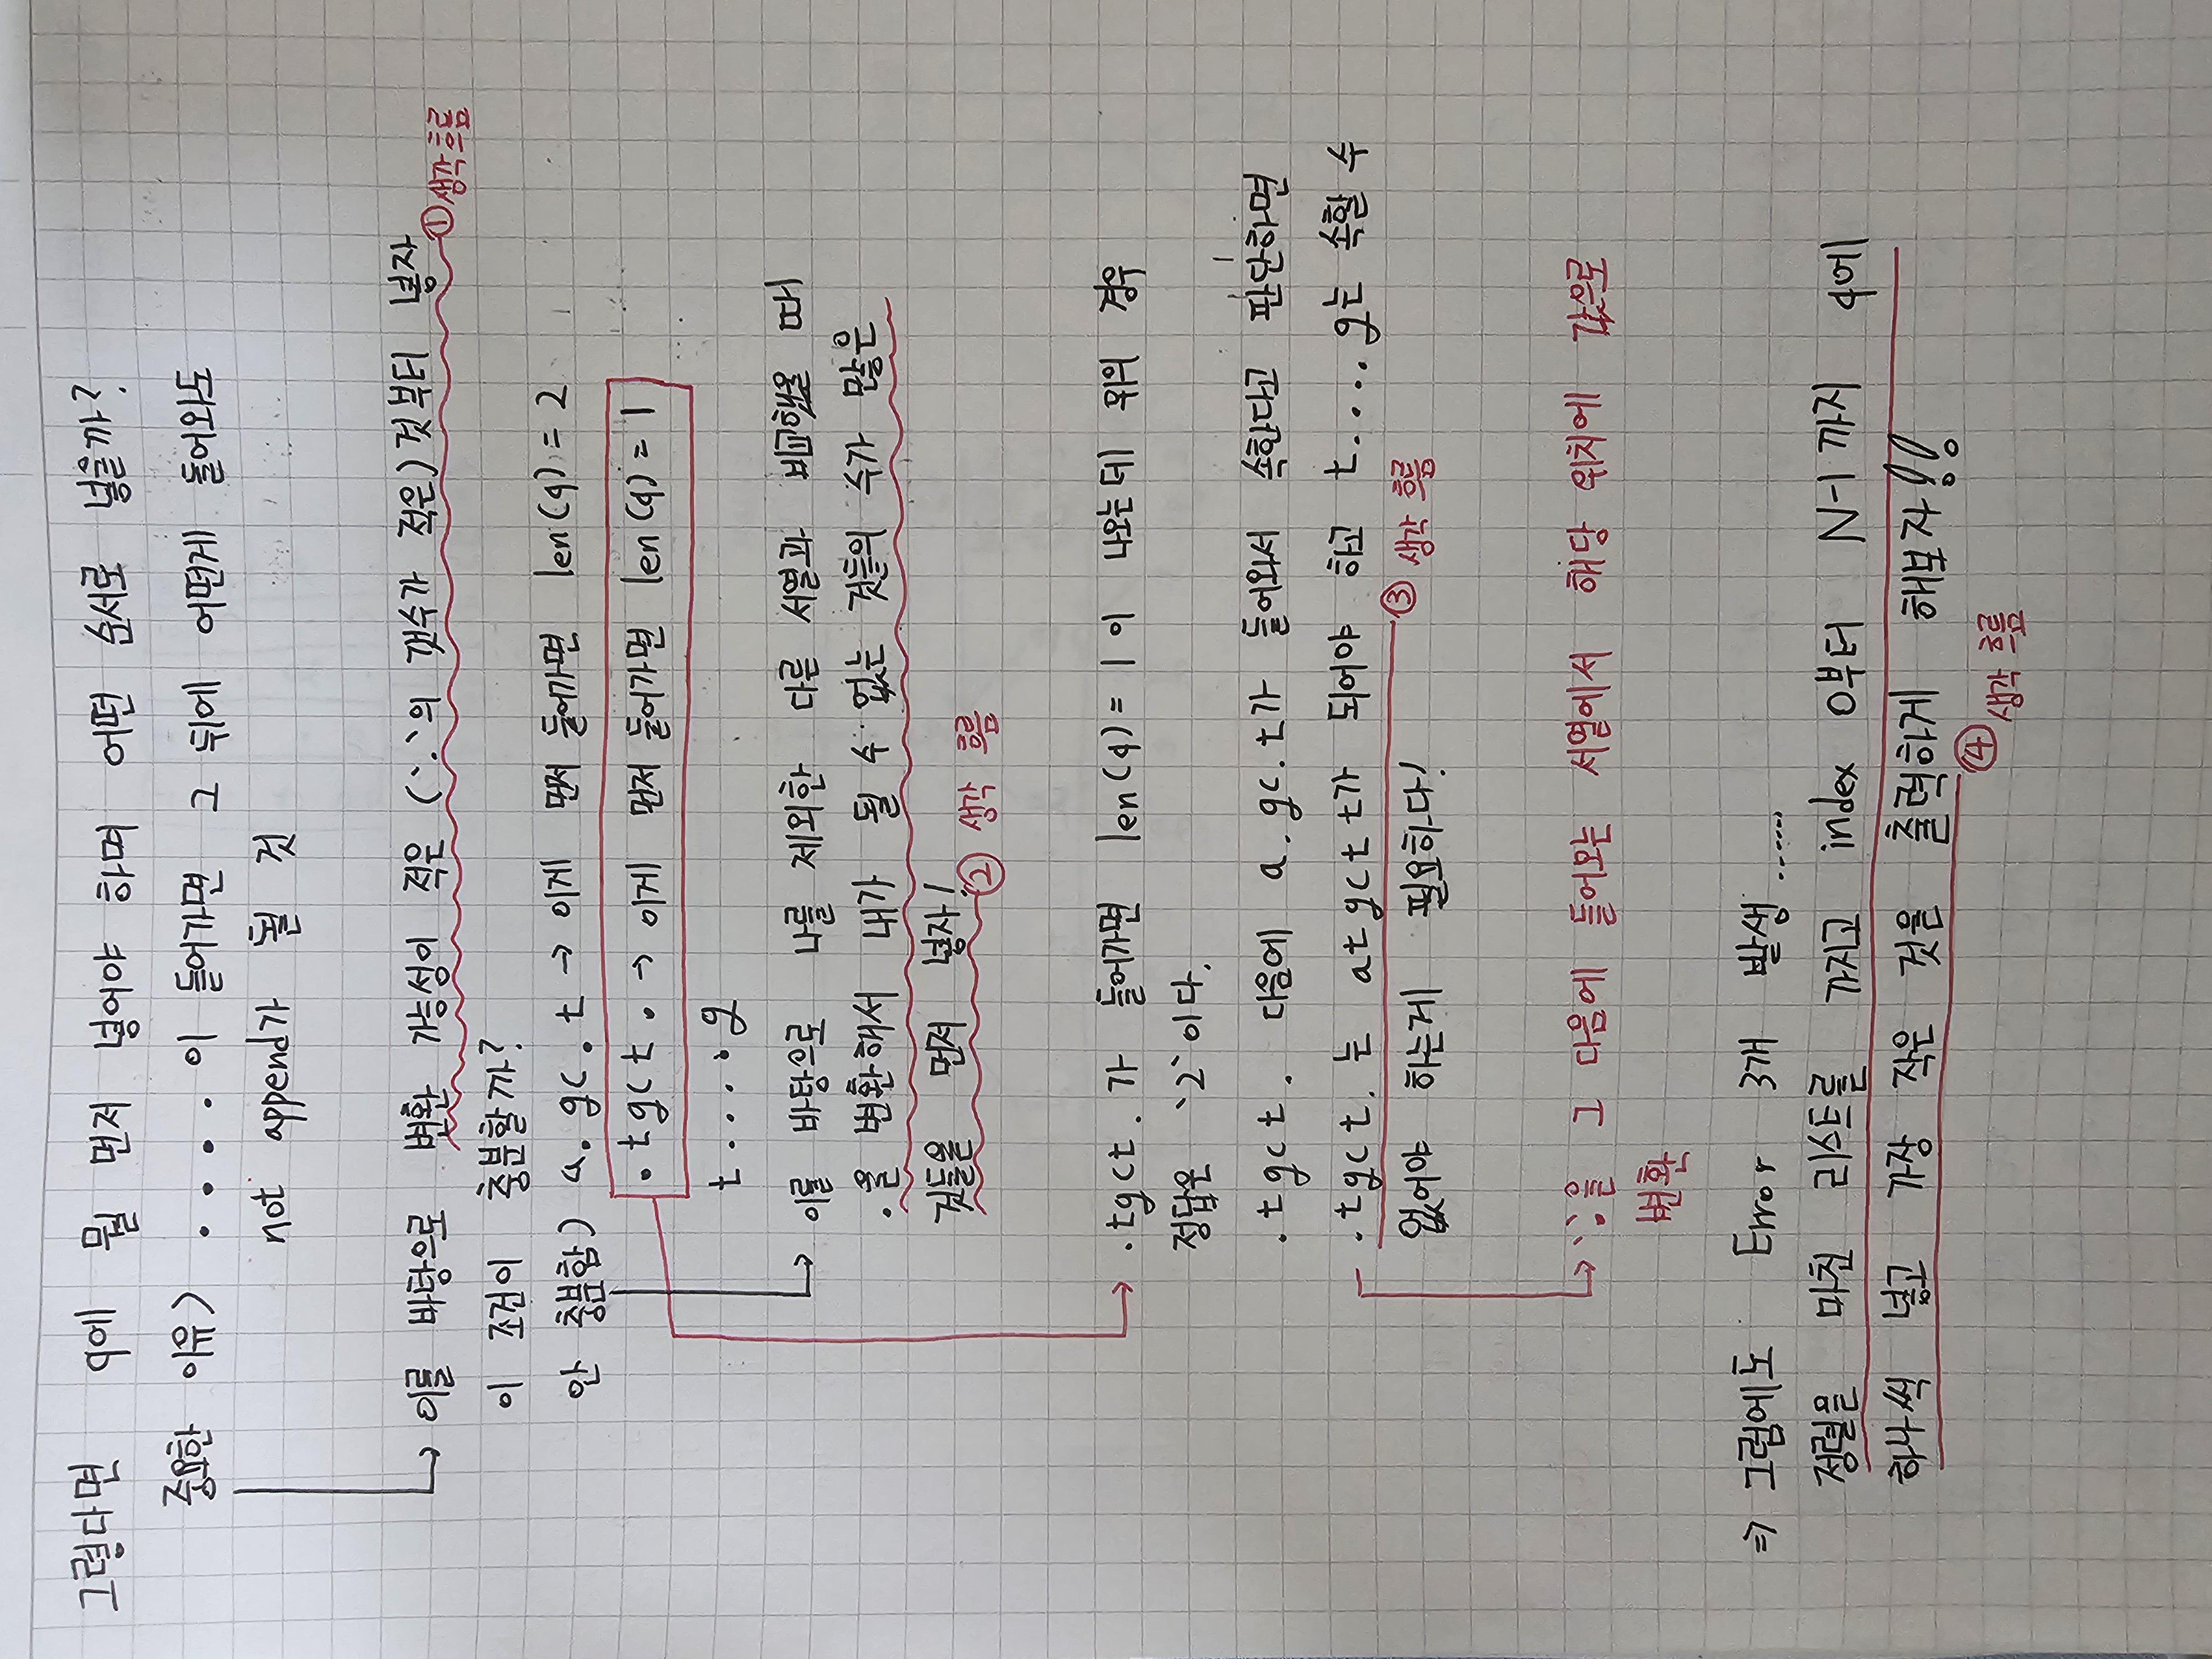 그렇다면 q에 뭘 먼저 넣어야 하며 어떤 순서로 넣을까?
중요한 이유) . . . . 이 들어가면 그 뒤에 어떤게 들어와도
not append가 될 것
이를 바탕으로 변환 가능성이 적은 ('.'의 갯수가 적은) 것부터 넣자
① 생각 흐름
이 조건이 충분할까?
안 충분함) a.gc.t → 이게 먼저 들어가면 len(q) = 2
.tgct. → 이게 먼저 들어가면 len(q) = 1
t....g
이를 바탕으로 나를 제외한 다른 서열과 비교했을 때
.을 변환해서 내가 될 수 없는 것들의 수가 많은
것들을 먼저 넣자!
② 생각 흐름
.tgct.가 들어가면 len(q) = 1이 나오는데 위의 경우
정답은 '2'이다.
.tgct. 다음에 a.gc.t가 들어와서 속한다고 판단하면
.tgct.는 atgctt가 되어야 하고 t....g는 속할 수
③ 생각 흐름
없어야 하는게 필요하다!
'.'을 그 다음에 들어오는 서열에서 해당 위치에 값으로
변환
⇒ 그럼에도 Error 3개 발생......
정렬을 마친 리스트를 가지고 index 0부터 N-1까지 q에
하나씩 넣고 가장 작은 것을 출력하게 해보자!!
④ 생각 흐름